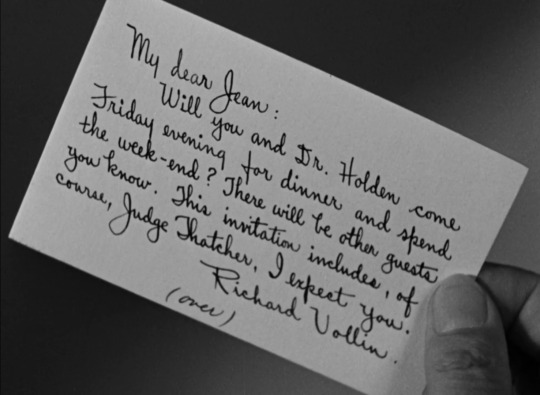 My dear Jean:
Will you and Dr. Holden come
Friday evening for dinner and spend
the week-end? There will be other guests
you know. This invitation includes, of
course, Judge Thatcher. I expect you.
Richard Vollin.
(over)